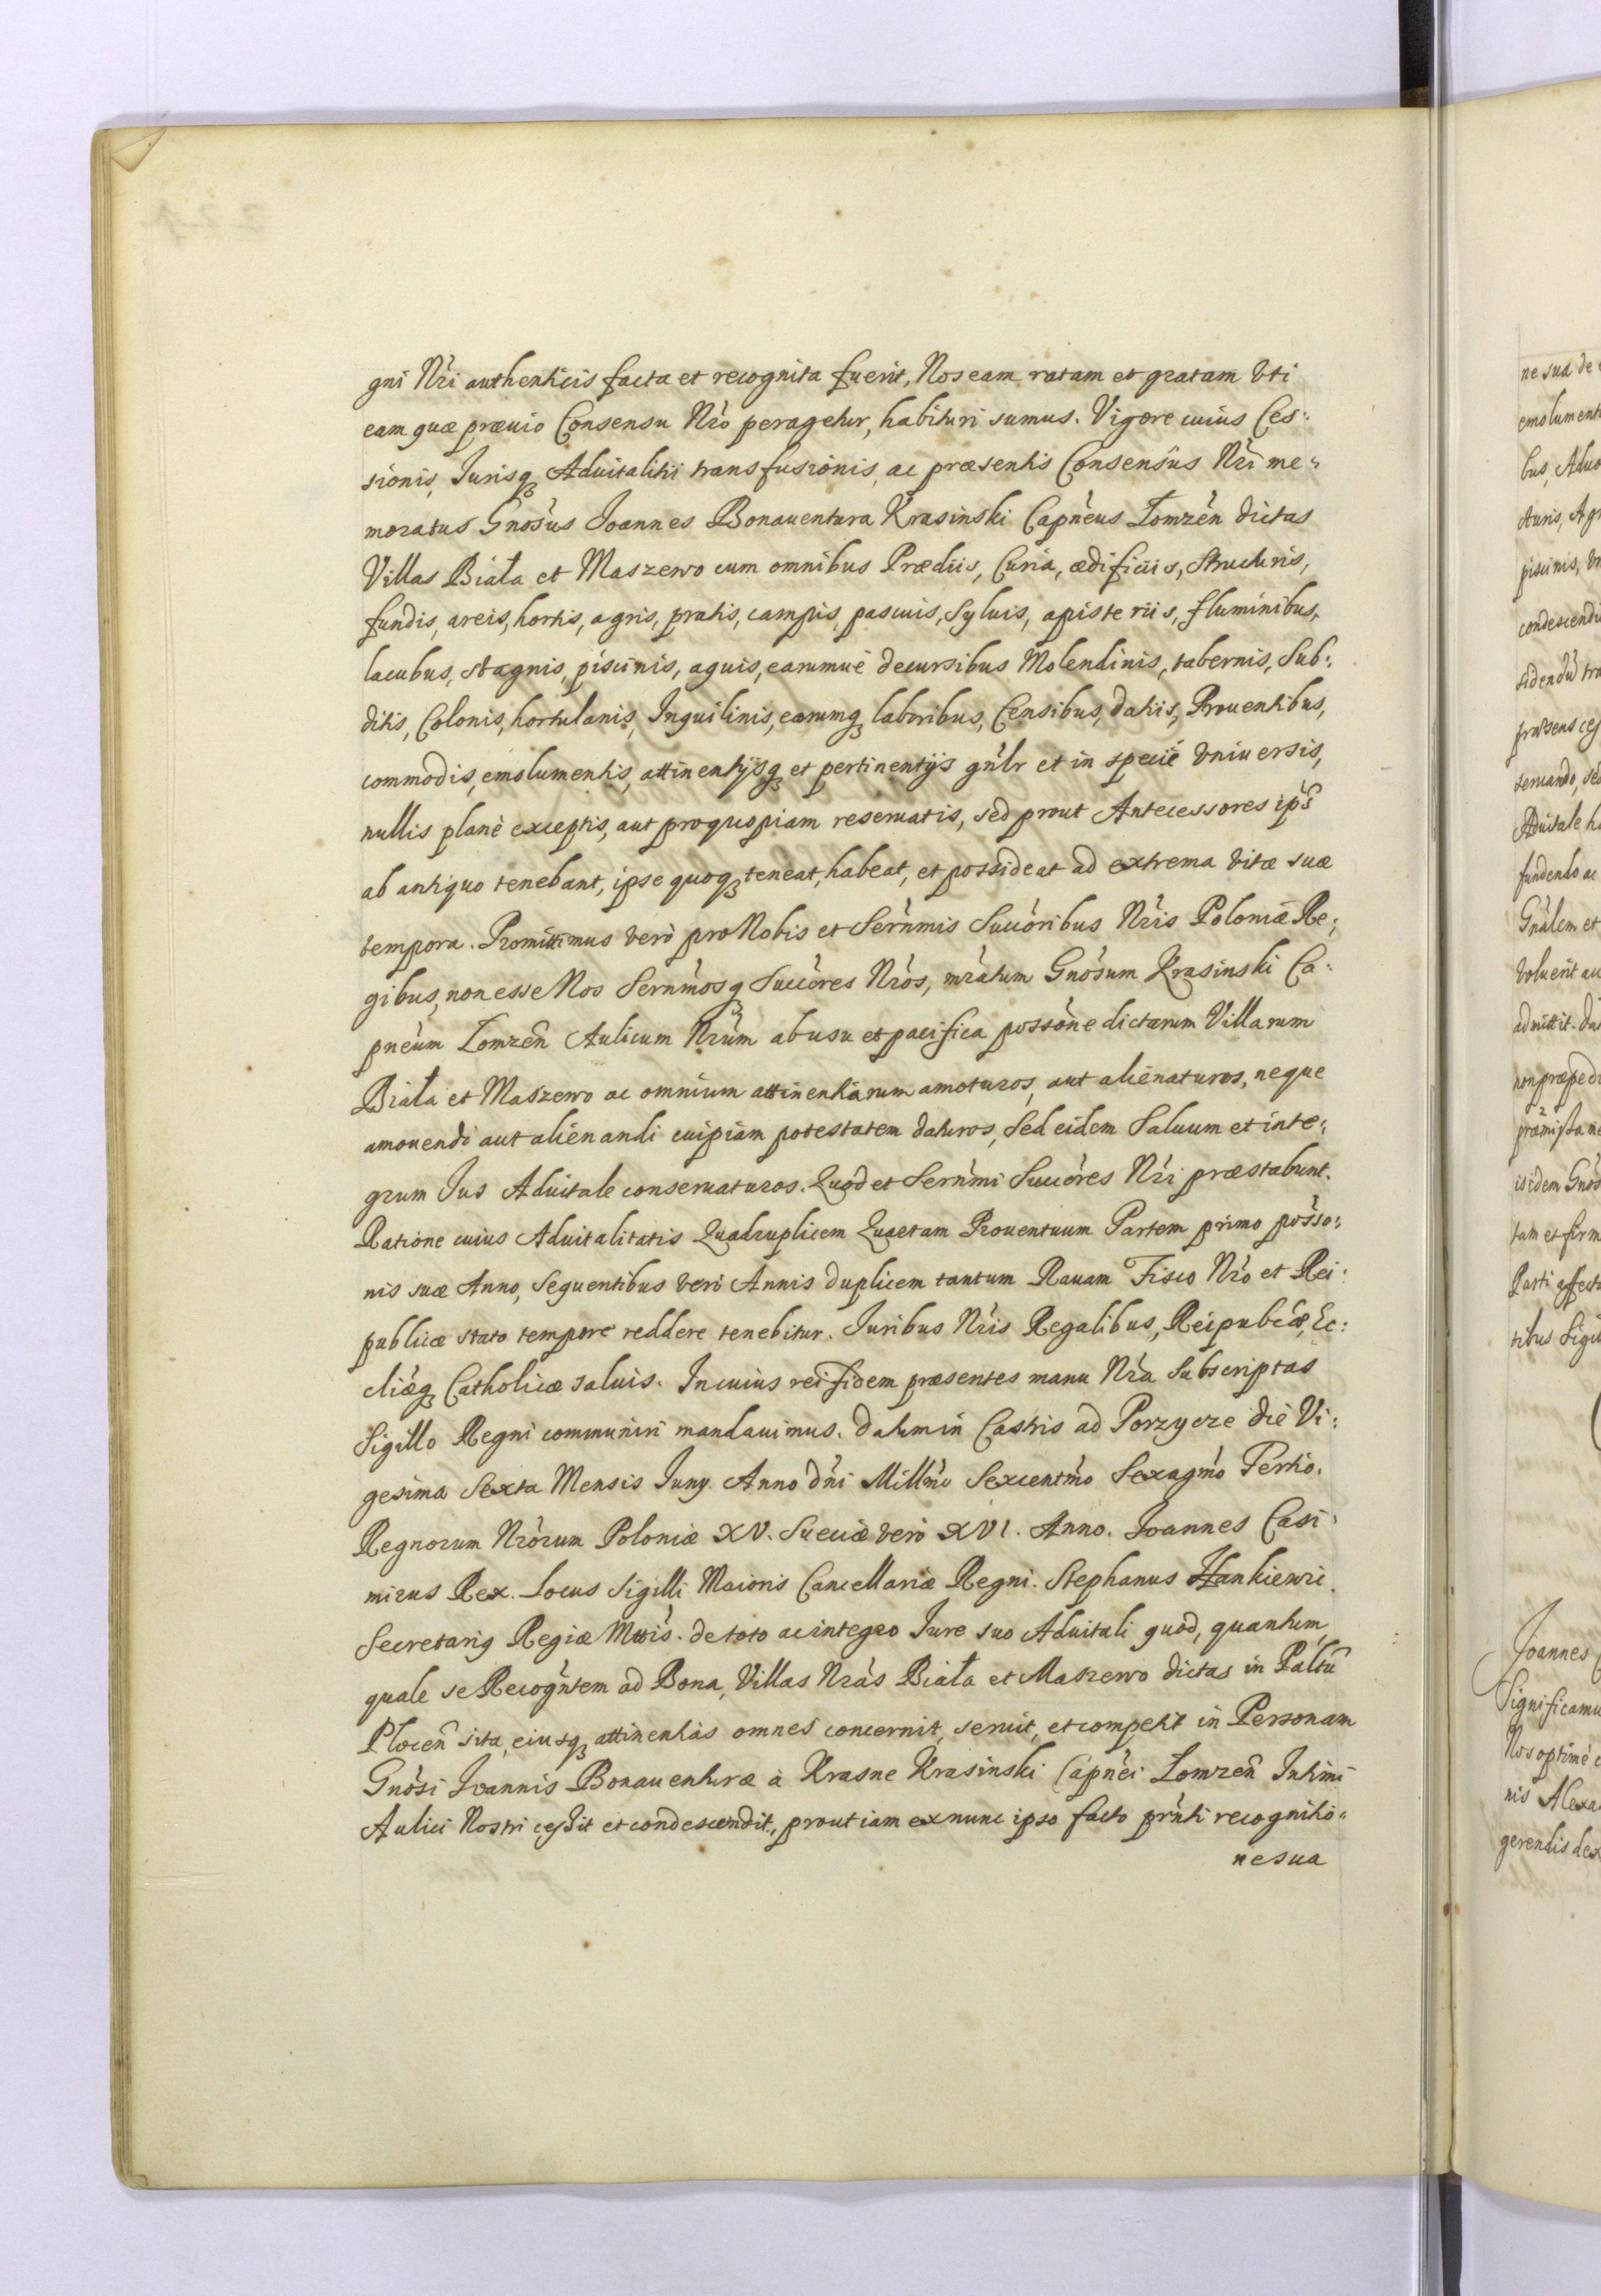 gni Nri authenticis facta et recognita fuerit, Nos eam ratam et gratam Vti
eam quæ præuio Consensu Nró peragetur, habituri sumus. Vigore cuius Ces:
sionis, Jurisq3 Aduitalitij transfusionis, ac præsentis Consensûs Nri me:
moratus Gnosùs Joannes Bonauentura Krasinski Capnèus Łomzèn dictas
Villas Biała et Maszewo cum omnibus Prædiis, Curia, ædificiis, structuris,
fundis, areis, hortis, agris, pratis, campis, pascuis, Syluis, apisteriis, fluminibus,
lacubus, stagnis, piscinis, aquis, earumuè decursibus Molendinis, tabernis, Sub:
ditis, Colonis, hortulanis, Inquilinis, eorumq3 laboribus, Censibus, datiis, Prouentibus,
commodis, emolumentis, attinentijsq3 et pertinentijs gnlr et in specie Vniuersis,
nullis planè exceptis, aut pro quopiam reseruatis, sed prout Antecessores ips
ab antiquo tenebant, ipse quoq3 teneat, habeat, et possideat ad extrema Vitæ suæ
tempora. Promittimus verò pro Nobis et Sernmis Succòribus Nris Poloniæ Re:
gibus, non esse Nos Sernmosq3 Succòres Nròs, mràtum Gnòsum Krasinski Ca:
pnèum Łomzen Aulicum Nrùm ab usu et pacifica possòne dictarum Villarum
Biała et Maszewo ac omnium attinentiarum amoturos, aut alienaturos, neque
amouendi aut alienandi cuipiam potestatem daturos, Sed eidem Saluum et inte:
grum Jus Aduitale conseruaturos. Quod et Sernmi Succòres Nri præstabunt.
Ratione cuius Aduitalitatis Quadruplicem Quartam Prouentuum Partem primo posso:
nis suæ Anno, Sequentibus verò Annis duplicem tantum Rauam Fisco Nrò et Rei:
publicæ stato tempore reddere tenebitur. Juribus Nris Regalibus, Reipublcæ, Ec:
cliæq3 Catholicæ saluis. In cuius rei fidem præsentes manu Nrà Subscriptas
Sigillo Regni communiri mandauimus. Datum in Castris ad Porzycze die Vi:
gesima Sexta Mensis Juny. Anno Dni Millmo Sexcentmo Sexagmo Tertio.
Regnorum Nròrum Poloniæ XV. Sueciæ verò XVI. Anno. Joannes Casi:
mirus Rex. Locus Sigilli Maioris Cancellariæ Regni. Stephanus Hankiewic
Secretarig Regiæ Mttis. de toto ac integro Jure suo Aduitali quod, quantum,
quale se Recogntem ad Bona, Villas Nràs Biała et Maszewo dictas in Paltu
Plocen sita, eiusq3 attinentias omnes concernit, seruit, et competit in Personam
Gnòsi Joannis Bonauenturæ à Krasne Krasinski Capnèi Łomzen Intimi
Aulici Nostri cessit et condescendit, prout iam ex nunc ipso facto prnti recognitio:
ne sua